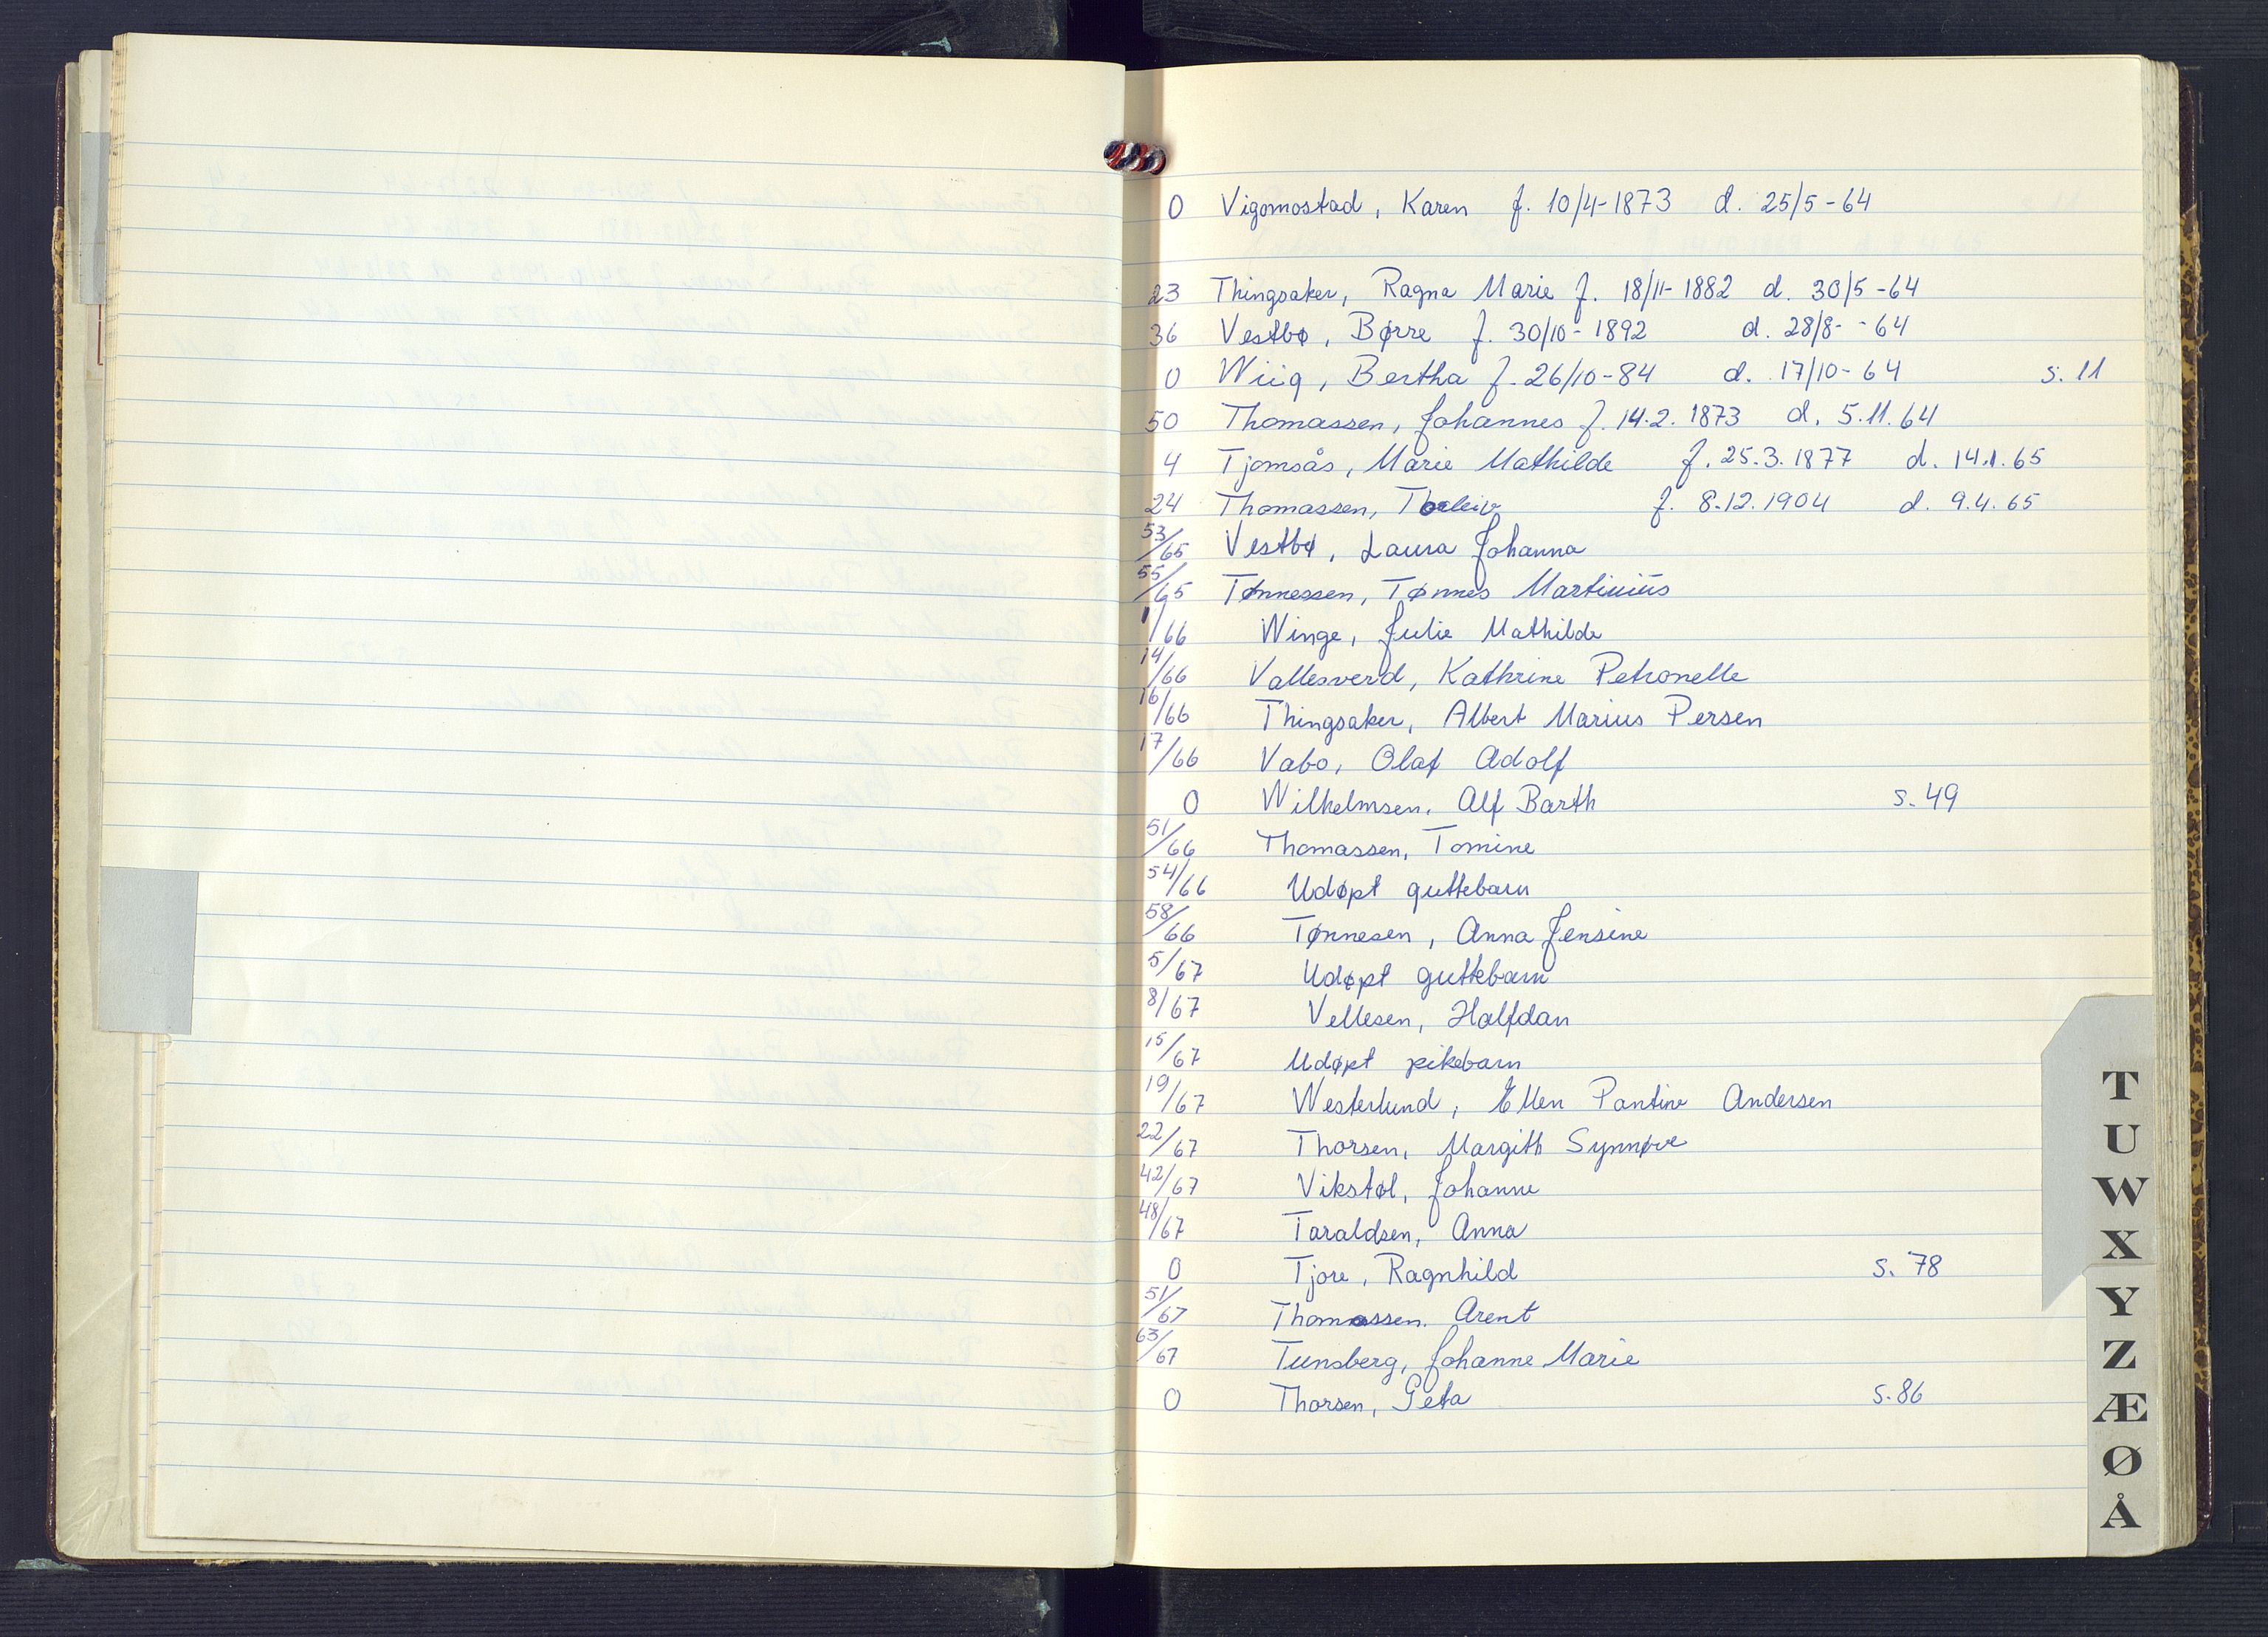 0 Vigomostad, Karen f. 10/4-1873 d. 25/5-64
23 Thingsaker, Ragna Marie f. 18/11-1882 d. 30/5-64
36 Vestbø, Børre f. 30/10-1892 d. 28/8--64
0 Wiig, Bertha f. 26/10-84 d. 17/10-64 s. 11
50 Thomassen, Johannes f. 14.2.1873 d. 5.11.64
4 Tjomsås, Marie Mathilde f. 25.3.1877 d. 14.1.65
24 Thomassen, Torleiv f. 8.12.1904 d. 9.4.65
53/65 Vestbø, Laura Johanna
55/65 Tønnessen, Tønnes Martinius
1/66 Winge, Julie Mathilde
14/66 Vallesverd, Kathrine Petronelle
16/66 Thingsaker, Albert Marius Persen
17/66 Vabo, Olaf Adolf
0 Wilhelmsen, Alf Barth s. 49
51/66 Thomassen, Tomine
54/66 Udøpt guttebarn
58/66 Tønnesen, Anna Jensine
5/67 Udøpt guttebarn
8/67 Vellesen, Halfdan
15/67 Udøpt pikebarn
19/67 Westerlund, Ellen Pantine Andersen
22/67 Thorsen, Margith Synnøve
42/67 Vikstøl, Johanne
48/67 Taraldsen, Anna
0 Tjore, Ragnhild s. 78
51/67 Thomassen. Arent
63/67 Tunsberg, Johanne Marie
0 Thorsen, Peta s. 86
T
U
W
X
Y
Z
Æ
Ø
Å